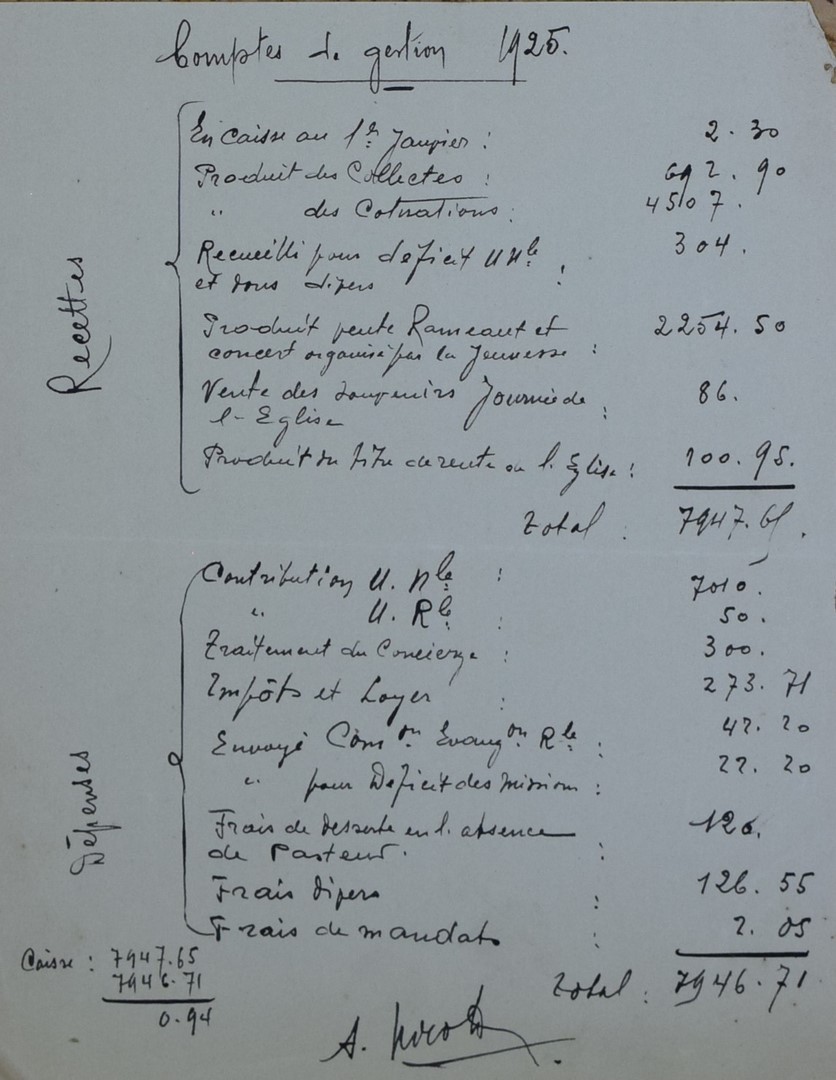 Comptes de gestion 1925.
Recettes
En caisse au 1er Janvier : 2.30
Produit des Collectes : 692.90
" des Cotisations : 4507.
Recueilli pour déficit U Nle
et dons divers : 304.
Produit vente Rameaux et
concert organisé par la Jeunesse : 2254.50
Vente des Souvenirs Journée de
l'Eglise : 86.
Produit du titre de rente de l'Eglise : 100.95.
Total : 7947.65.
Dépenses
Contribution U. Nle : 7010.
" U. Rle : 50.
Traitement du Concierge : 300.
Impôts et Loyer : 273.71
Envoyé Comon Evangon Rle : 42.20
" pour Déficit des missions : 22.20
Frais de desserte en l'absence
de Pasteur : 120.
Frais divers : 126.55
Frais de mandats : 2.05
Total : 7946.71
Caisse : 7947.65
7946.71
0.94
A.